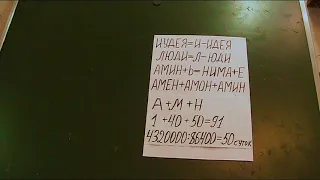 ИУДЕЯ=И-ИДЕЯ
ЛЮДИ=Л-ЮДИ
АМИН+Ь=НИМА+Е
АМЕН+АМОН+АМИН
А+М+Н
1+40+50=91
4320000:86400=50 суток